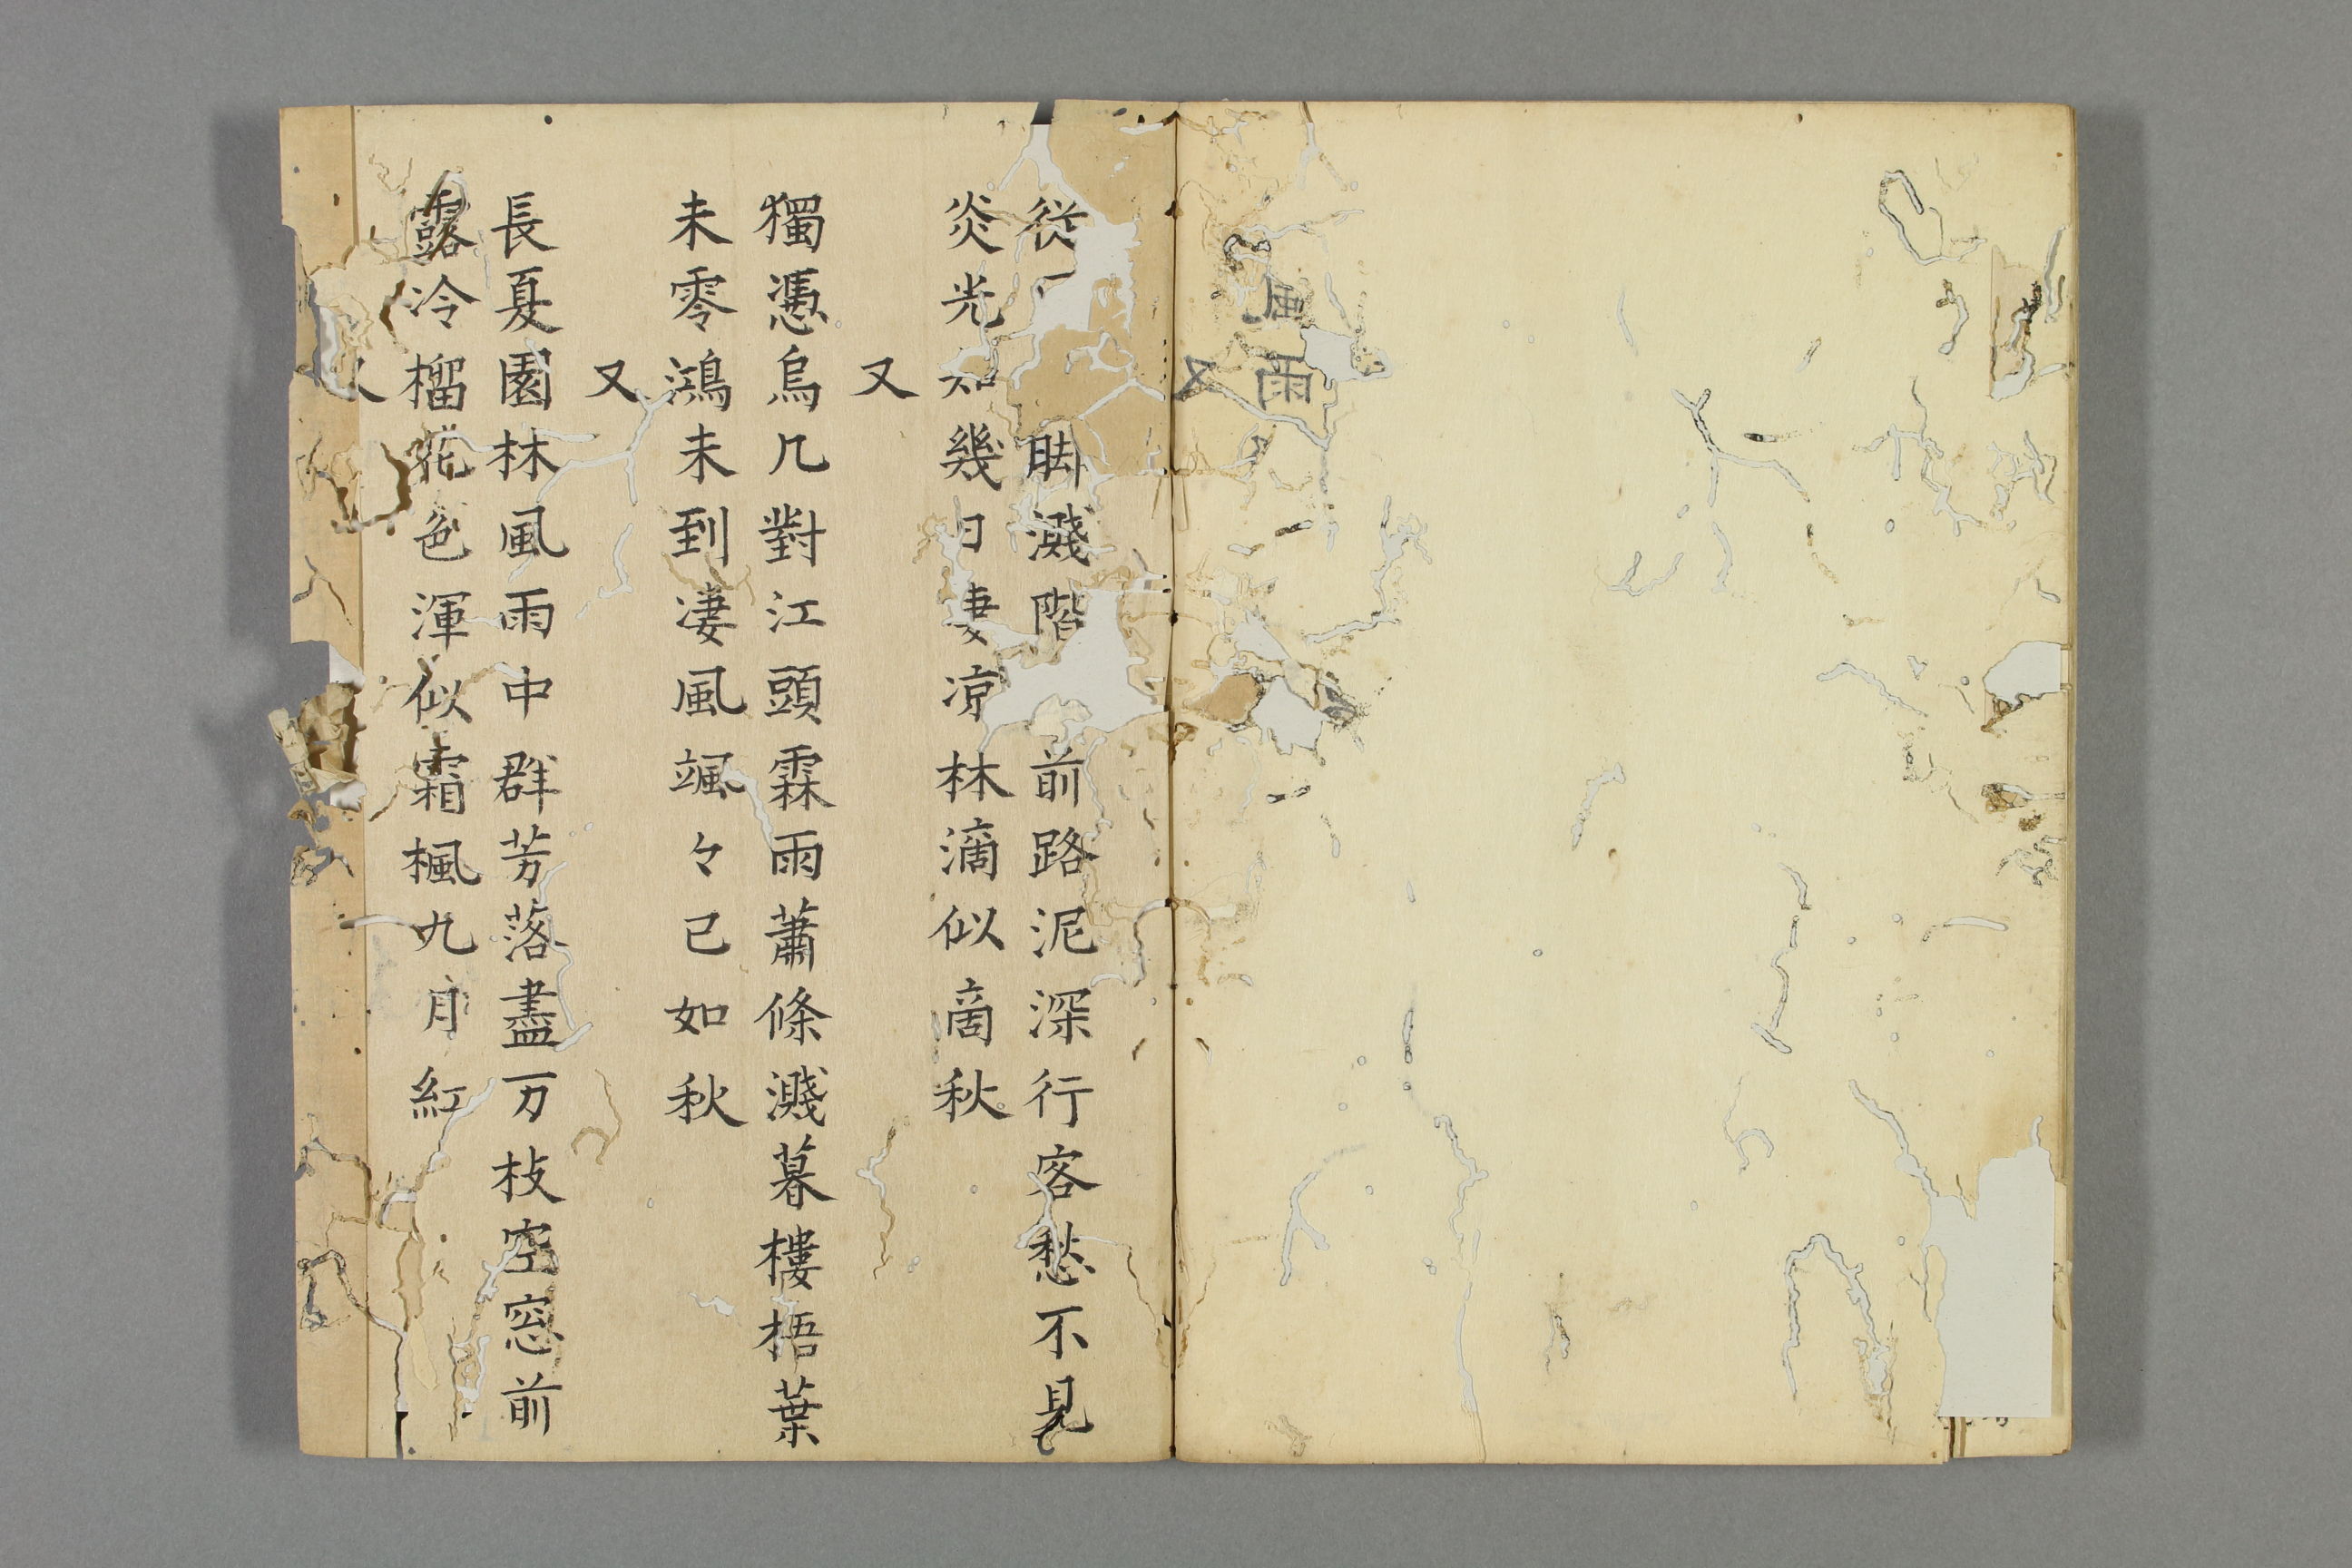 風雨
又
從 脚濺階 前路泥深行客愁不見
炎光知幾日凄凉林滴似商秋
又
獨憑烏几對江頭霖雨蕭條濺暮樓梧葉
未零鴻未到凄風颯々已如秋
又
長夏園林風雨中群芳落盡万枝空窓前
露冷榴花色渾似霜楓九月紅